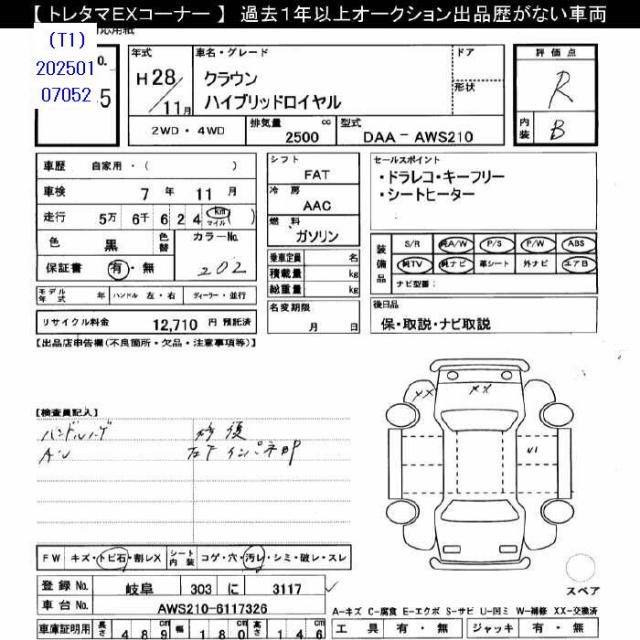 【 トレタマEXコーナー 】 過去1年以上オークション出品歴がない車両
(T1)
202501
07052
o.
5
年式
H28/11月
車名・グレード
クラウン
ハイブリッドロイヤル
ドア
形状
評価点
R
内装
B
2WD ・ 4WD
排気量
2500
cc
型式
DAA − AWS210
車歴
自家用・(
)
車検
7 年 11 月
走行
5万 6千 6 2 4
km
マイル
( )
色
黒
色替
カラーNo.
202
保証書
有・無
モデル年式
年
ハンドル
左・右
ディーラー・並行
リサイクル料金
12,710 円 預託済
シフト
FAT
冷房
AAC
燃料
ガソリン
乗車定員
名
積載量
kg
総重量
kg
名変期限
月 日
セールスポイント
・ドラレコ・キーフリー
・シートヒーター
装備品
S/R
純A/W
P/S
P/W
ABS
純TV
純ナビ
革シート
外ナビ
エアB
ナビ型番:
後日品
保・取説・ナビ取説
【出品店申告欄(不良箇所・欠品・注意事項等)】
【検査員記入】
修復
FW
キズ・トビ石・割レX
シート内装
コゲ・穴・汚レ・シミ・破レ・スレ
登録No.
岐阜 303 に 3117
車台No.
AWS210-6117326
車庫証明用
長さ
489
幅
180
高さ
146
XX
XX
U1
スペア
A−キズ C−腐食 E−エクボ S−サビ U−凹ミ W−補修 XX−交換済
工具
有・無
ジャッキ
有・無